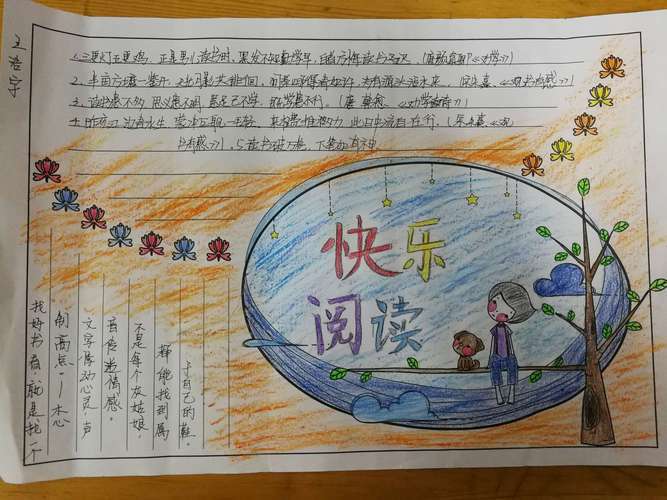 王浩宇
1.三更灯五更鸡,正是男儿读书时,黑发不知勤学早,白首方悔读书迟。(唐颜真卿《劝学》)
2.半亩方塘一鉴开,天光云影共徘徊,问渠那得清如许,为有源头活水来。(宋朱熹《观书有感》)
3.读书患不多,思义患不明,患足己不学,既学患不行。(唐 韩愈 《劝学》)
4.昨夜江边春水生,蒙冲巨舰一毛轻,向来枉费推移力,此日中流自在行。(宋朱熹《观
书有感》)5.读书破万卷,下笔如有神
快乐
阅读
找好书看,就是找一个
制高点。木心
文字像动心灵,声
音传递情感。
不是每个灰姑娘,
都能找到属
于自己的鞋。